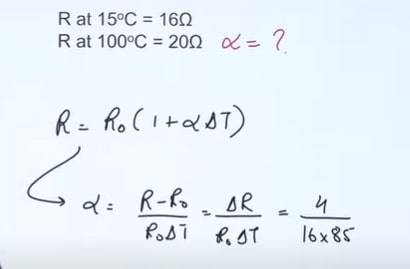 R at 15ºC = 16Ω
R at 100ºC = 20Ω α = ?
R = R₀ ( 1 + α ΔT )
α = R - R₀ / R₀ ΔT = ΔR / R₀ ΔT = 4 / 16 x 85